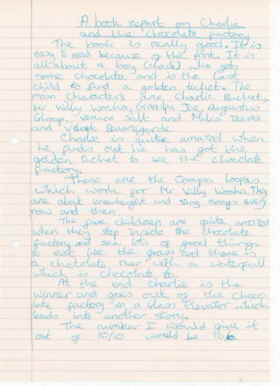 A book report on Charlie
and the Chocolate factory
The book is really good. It is
easy to read because of the font. It is
all about a boy who gets
some chocolate and is the last
child to find a golden ticket. The
main Characters are Charlie Bucket,
Mr Willy Wonka, Grandpa Joe, Augustus
Gloop, Veruca Salt and Mike Teavee
and Violet Beauregarde.
Charlie is quite amazed when
he finds out he has got the
golden ticket to see the chocolate
factory.
These are the Oompa loopas
which work for Mr Willy Wonka. They
are about and sing songs every
now and then.
The five children are quite amazed
when they step inside the chocolate
factory and see lots of good things
to eat, like the grass but there is
a chocolate river with a waterfall
which is chocolate to.
At the end Charlie is the
winner and goes out of the choco-
late factory in a Glass Elevator which
leads into another story.
The number I would give it
out of 10/10 would be